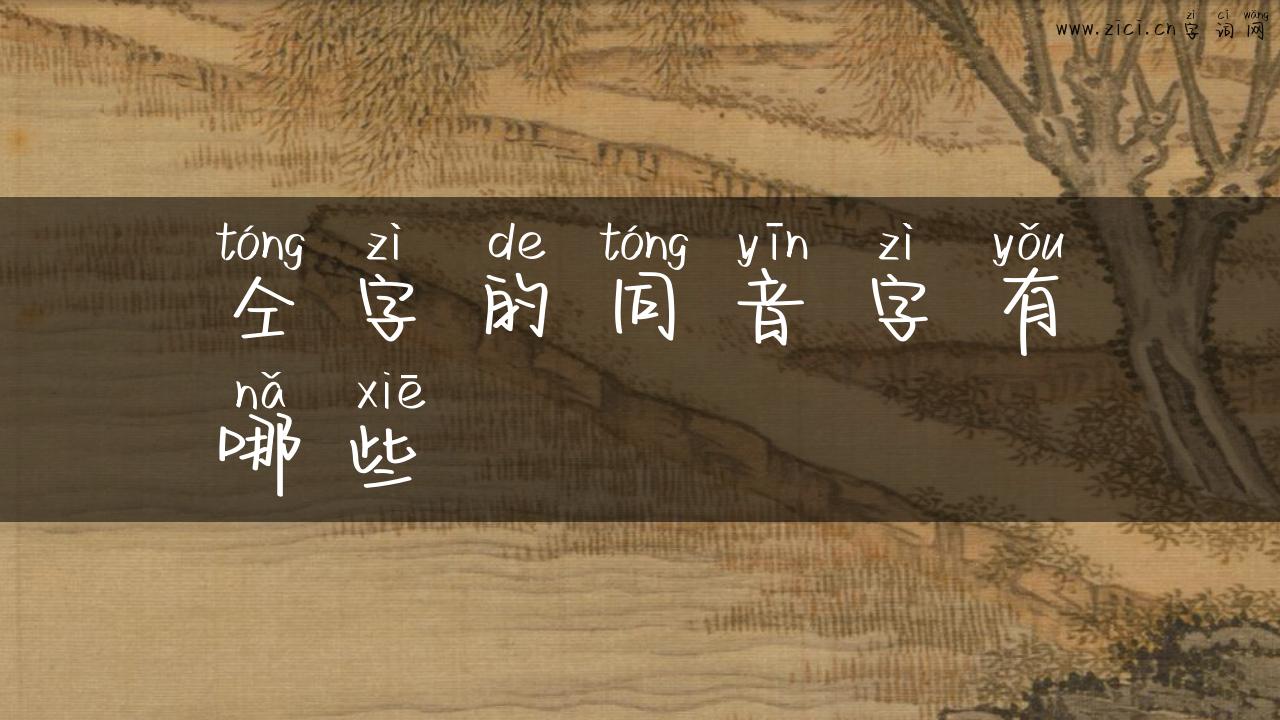 zì cí wǎng
www.zici.cn字词网
tóng zì de tóng yīn zì yǒu
仝字的同音字有
nǎ xiē
哪些